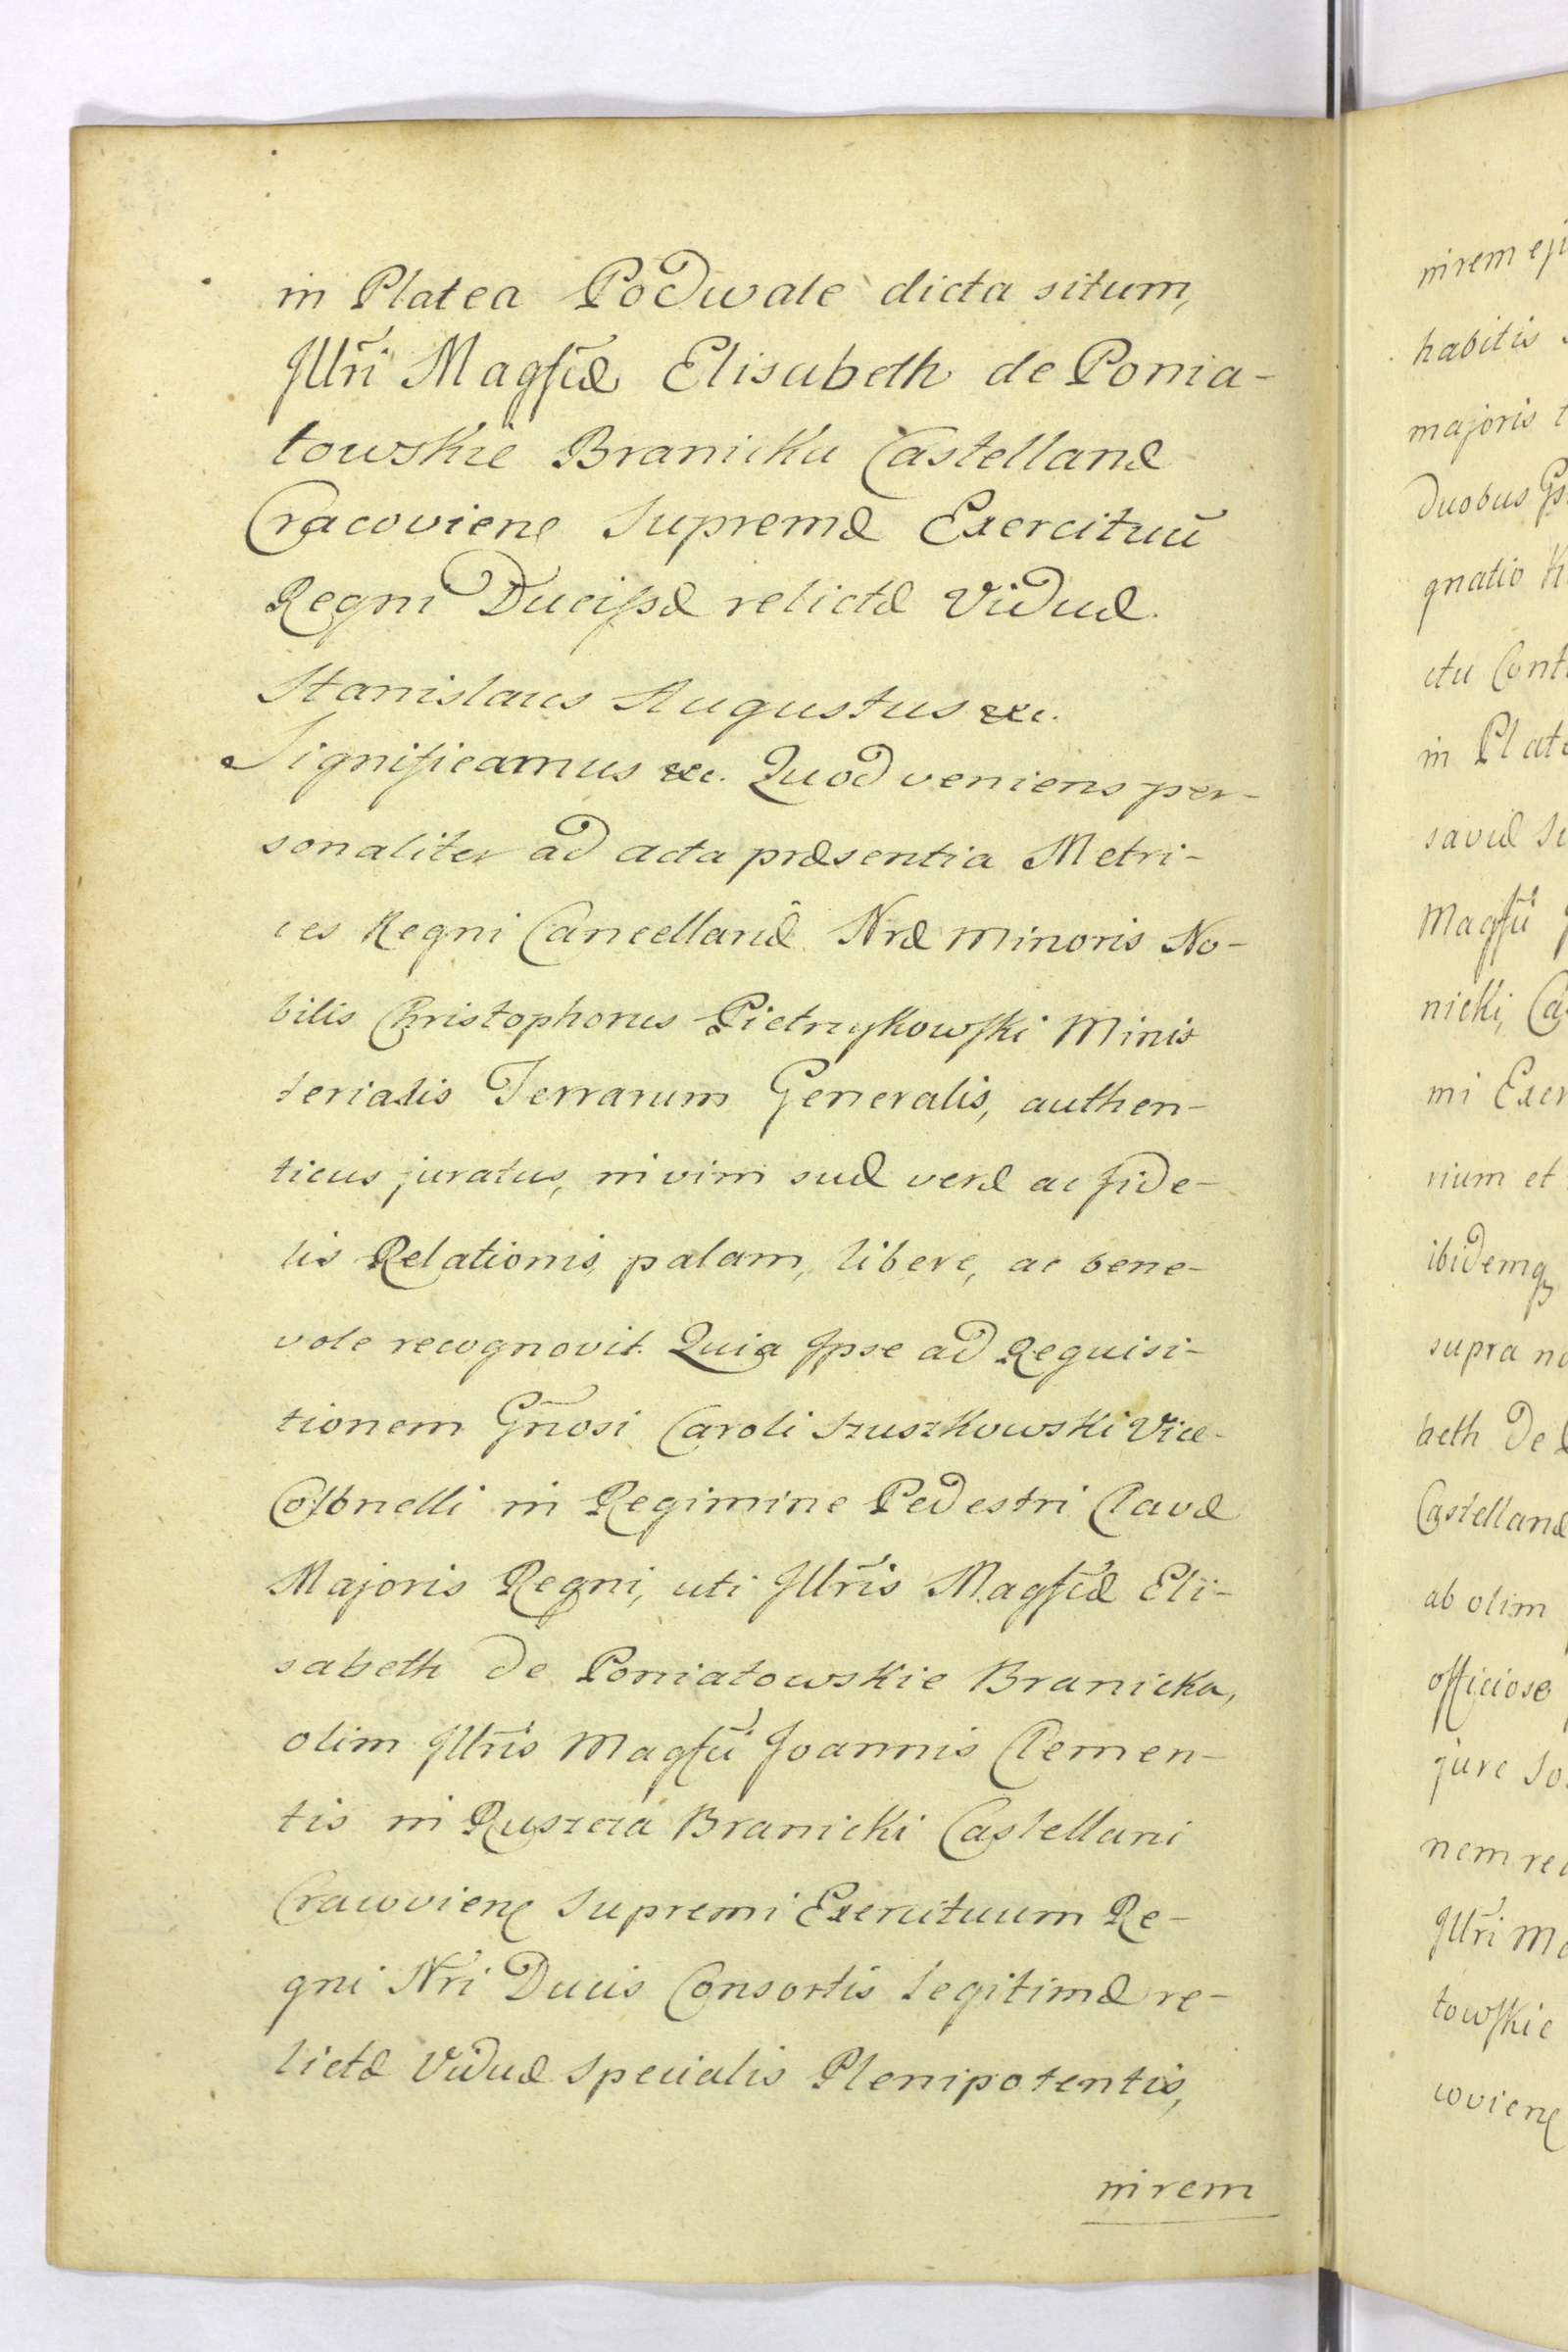 in Platea Podwale dicta situm,
Jllri Magfcæ Elisabeth de Ponia-
towskie Branicka Castellanæ
Cracovien. Supremæ Exercituũ
Regni Ducissæ relictæ Viduæ.
Stanislaus Augustus &c.
Significamus &c. Quod veniens per-
sonaliter ad acta præsentia Metri-
ces Regni Cancellariæ Nræ Minoris No-
bilis Christophorus Pietrzykowski Minis
terialis Terrarum Generalis, authen-
ticus juratus, in vim suæ veræ ac fide-
lis Relationis, palam, libere, ac bene-
vole recognovit. Quia Jpse ad Requisi-
tionem Gñosi Caroli Szuszkowski Vice-
Collonelli in Regimine Pedestri Clavæ
Majoris Regni, uti Jllris Magfcæ Eli-
sabeth de Poniatowskie Branicka,
olim Jllris Magfci Joannis Clemen-
tis in Ruszcza Branicki Castellani
Cracovien. Supremi Exercituum Re-
gni Nri Ducis Consortis legitimæ re-
lictæ Viduæ Specialis Plenipotentis,
in rem
in rem eji
habitis
majoris
duobus
gnatio
ctu Cont
in Plate
saviæ
Magfci
nicki, Ca
mi Exer
rium et
ibidemq
supra no
beth de
Castellanæ
ab olim
officiose
jure
nem re
Jllri Ma
towskie
covien.